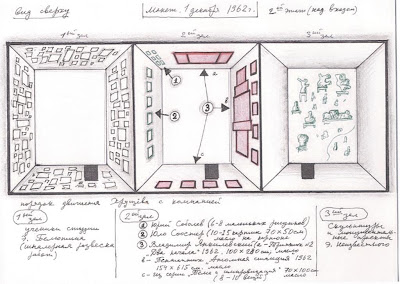 Вид сверху
Макет. 1 декабря 1962 г.
2ой этаж (над входом)
1ый зал
2ой зал
3ий зал
1
2
3
a
b
c
порядок движения Хрущёва с компанией
1ый зал
учеников студии
Э. Белютина
(шпалерная развеска
работ)
2ой зал
1 Юрий Соболев (6-8 маленьких рисунков)
2 Юло Соостер (10-15 картин 70x50см)
масло на картоне
3 Владимир Янкилевский (а -
№2
"Два начала" 1962,
масло
Атомная станция 1962
масло
с - из серии "Тема и импровизация" 70x100см
масло
(8-10 вещей)
3ий зал
Скульптуры
Э. Неизвестного